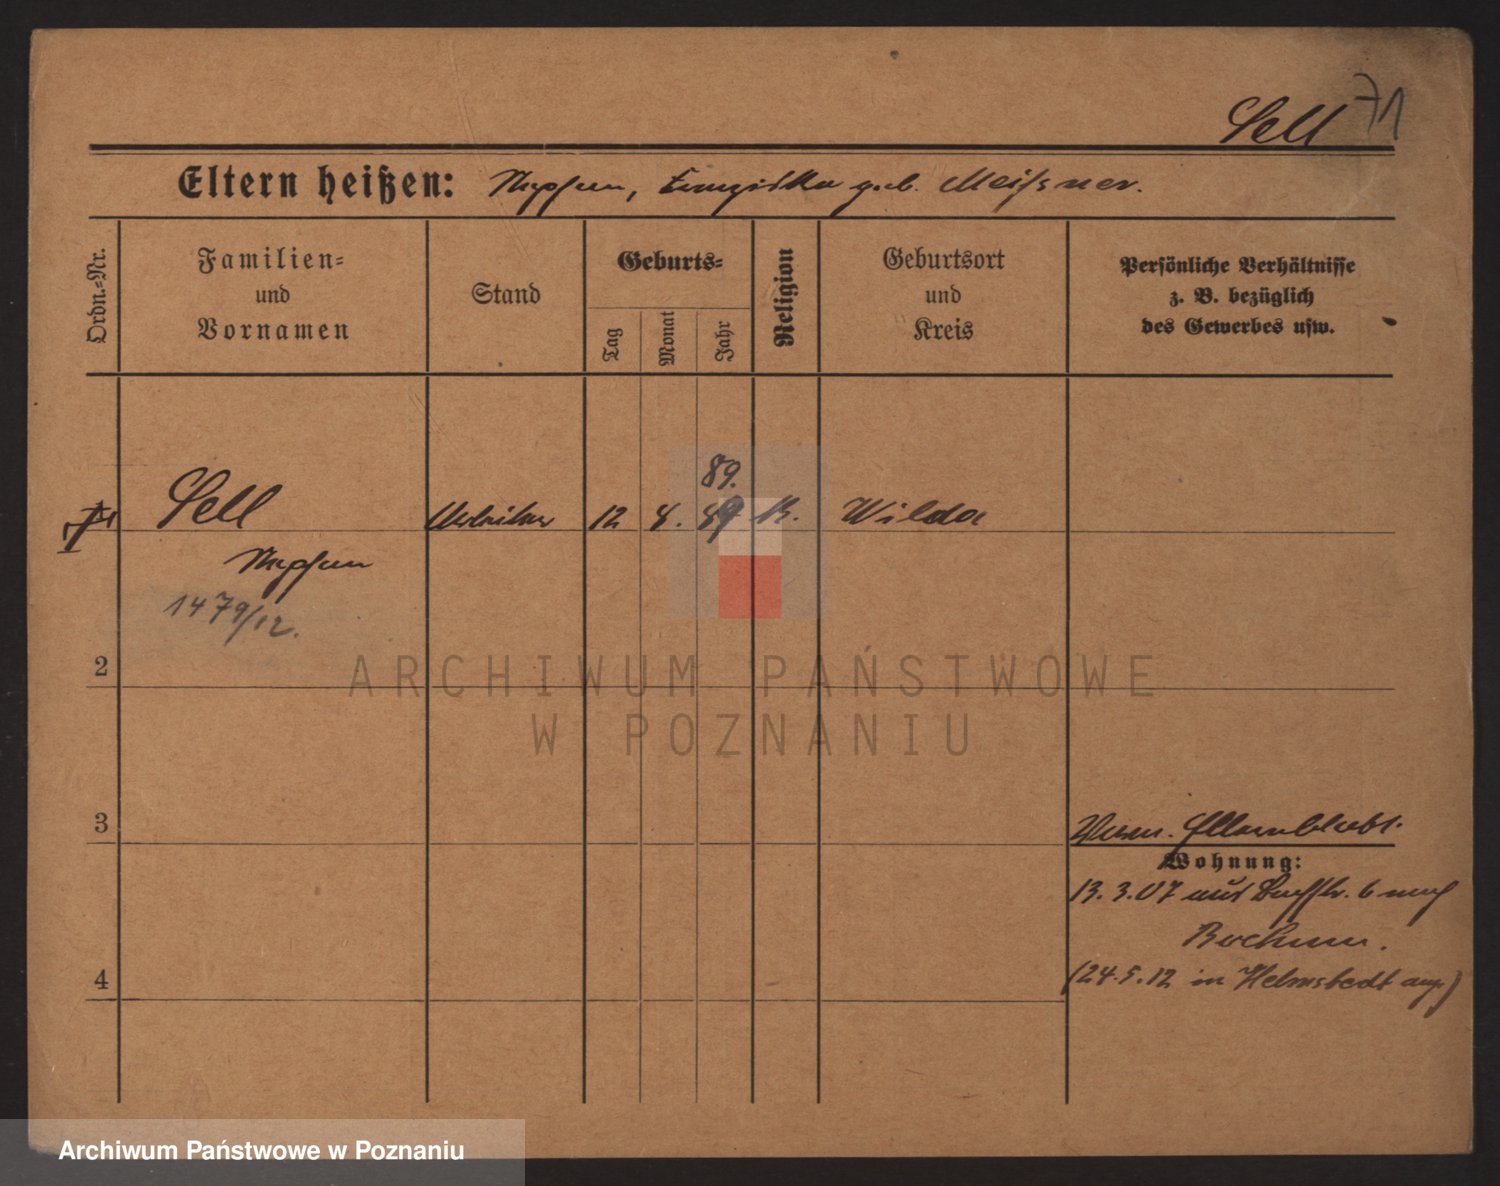 Sell 71
Eltern heißen: Stephan, Franziska geb. Meißner.
Ordn.-Nr.
Familien-
und
Vornamen
Stand
Geburts-
Tag
Monat
Jahr
Religion
Geburtsort
und
Kreis
Persönliche Verhältnisse
z. B. bezüglich
des Gewerbes usw.
89.
1 Sell Arbeiter 12 8. 89 K. Wilda
Stephan
1479/12.
2
3
Wohnung:
13.3.07 aus 6 nach
Bochum.
4
(24.5.12 in Helmstedt ang.)
ARCHIWUM PAŃSTWOWE
W POZNANIU
Archiwum Państwowe w Poznaniu